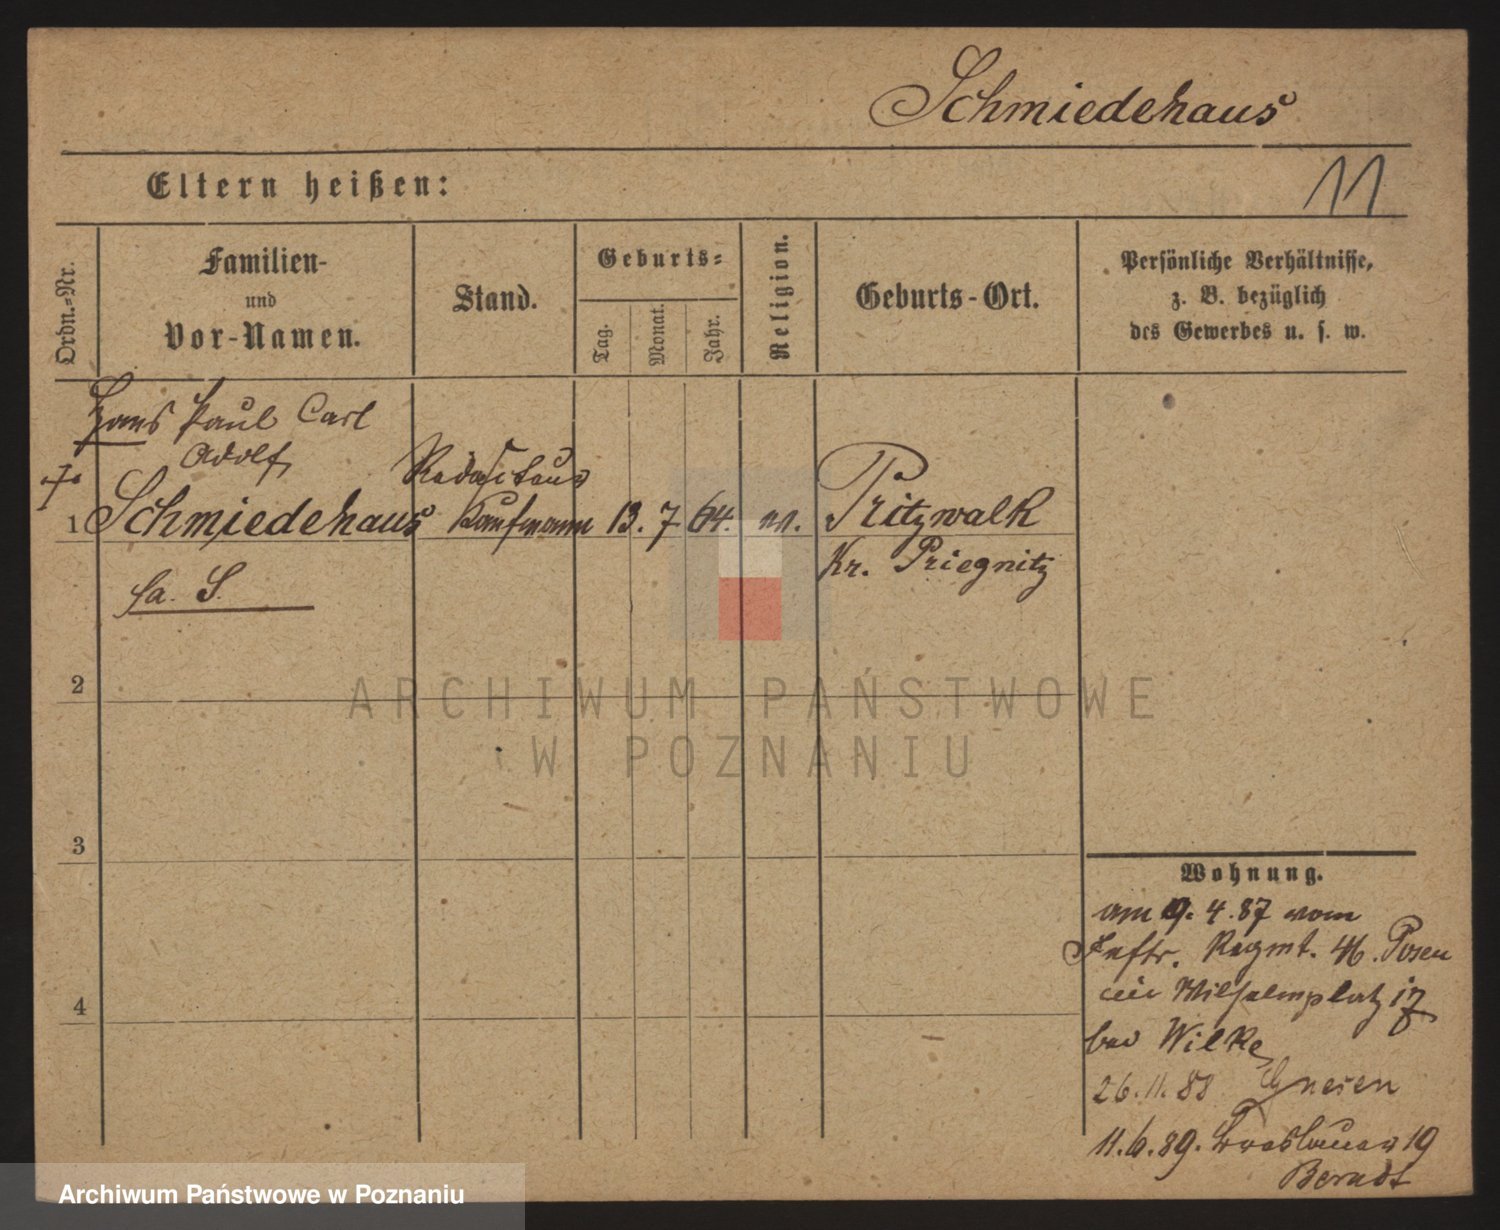 Schmiedehaus
Eltern heißen:
11
Ordn.-Nr.
Familien-
und
Vor-Namen.
Stand.
Geburts-
Tag.
Monat.
Jahr.
Religion.
Geburts-Ort.
Persönliche Verhältnisse,
z. B. bezüglich
des Gewerbes u. s. w.
Hans Paul Carl
Adolf
Redakteur
1 Schmiedehaus Kaufmann 13. 7 64. ev. Pritzwalk
Kr. Priegnitz
fa. S.
2
3
4
ARCHIWUM PAŃSTWOWE
W POZNANIU
Wohnung.
am 9. 4. 87 vom
Inftr. Regmt. 46. Posen
Wilhelmplatz 17
bei Wilke
26. 11. 88 Gnesen
11. 6. 89. Breslauer 19
Berndt
Archiwum Państwowe w Poznaniu